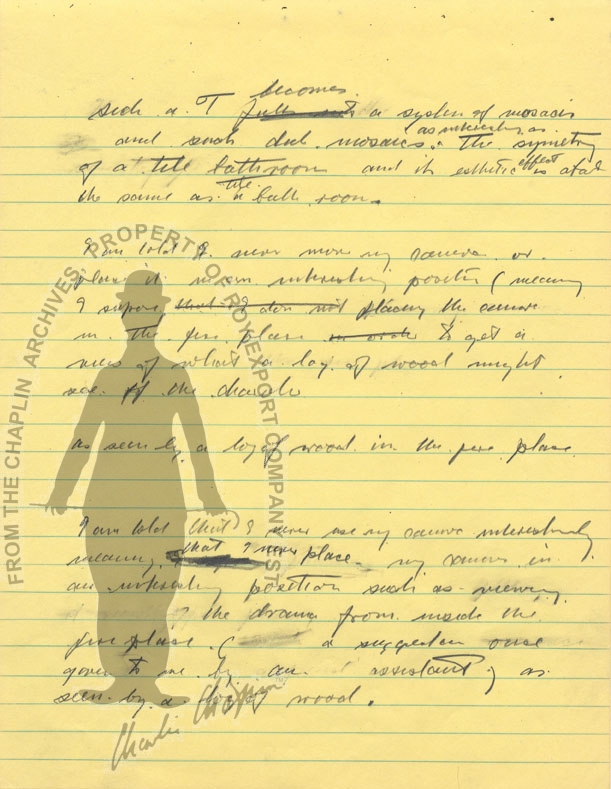 becomes
such a T a system of mosaics
and such dull mosaics. The symetry
as interesting as
of a tile bathroom and its esthetic effect is
the same as a tile bath room.
I am told I never move my camera or
place it in an interesting position (meaning
I supose that I dont not placing the camera
in the fire place in order to get a
view of what a log of wood might
see of the
as seen by a log of wood in the fire place
I am told that I never use my camera interestingly
meaning that I never place my camera in
an interesting position such as viewing
the drama from inside the
fire place. ( a suggestion once
given to me by an assistant) as
seen by a log of wood.
FROM THE CHAPLIN ARCHIVES, PROPERTY OF ROY EXPORT COMPANY EST
Charlie Chaplin